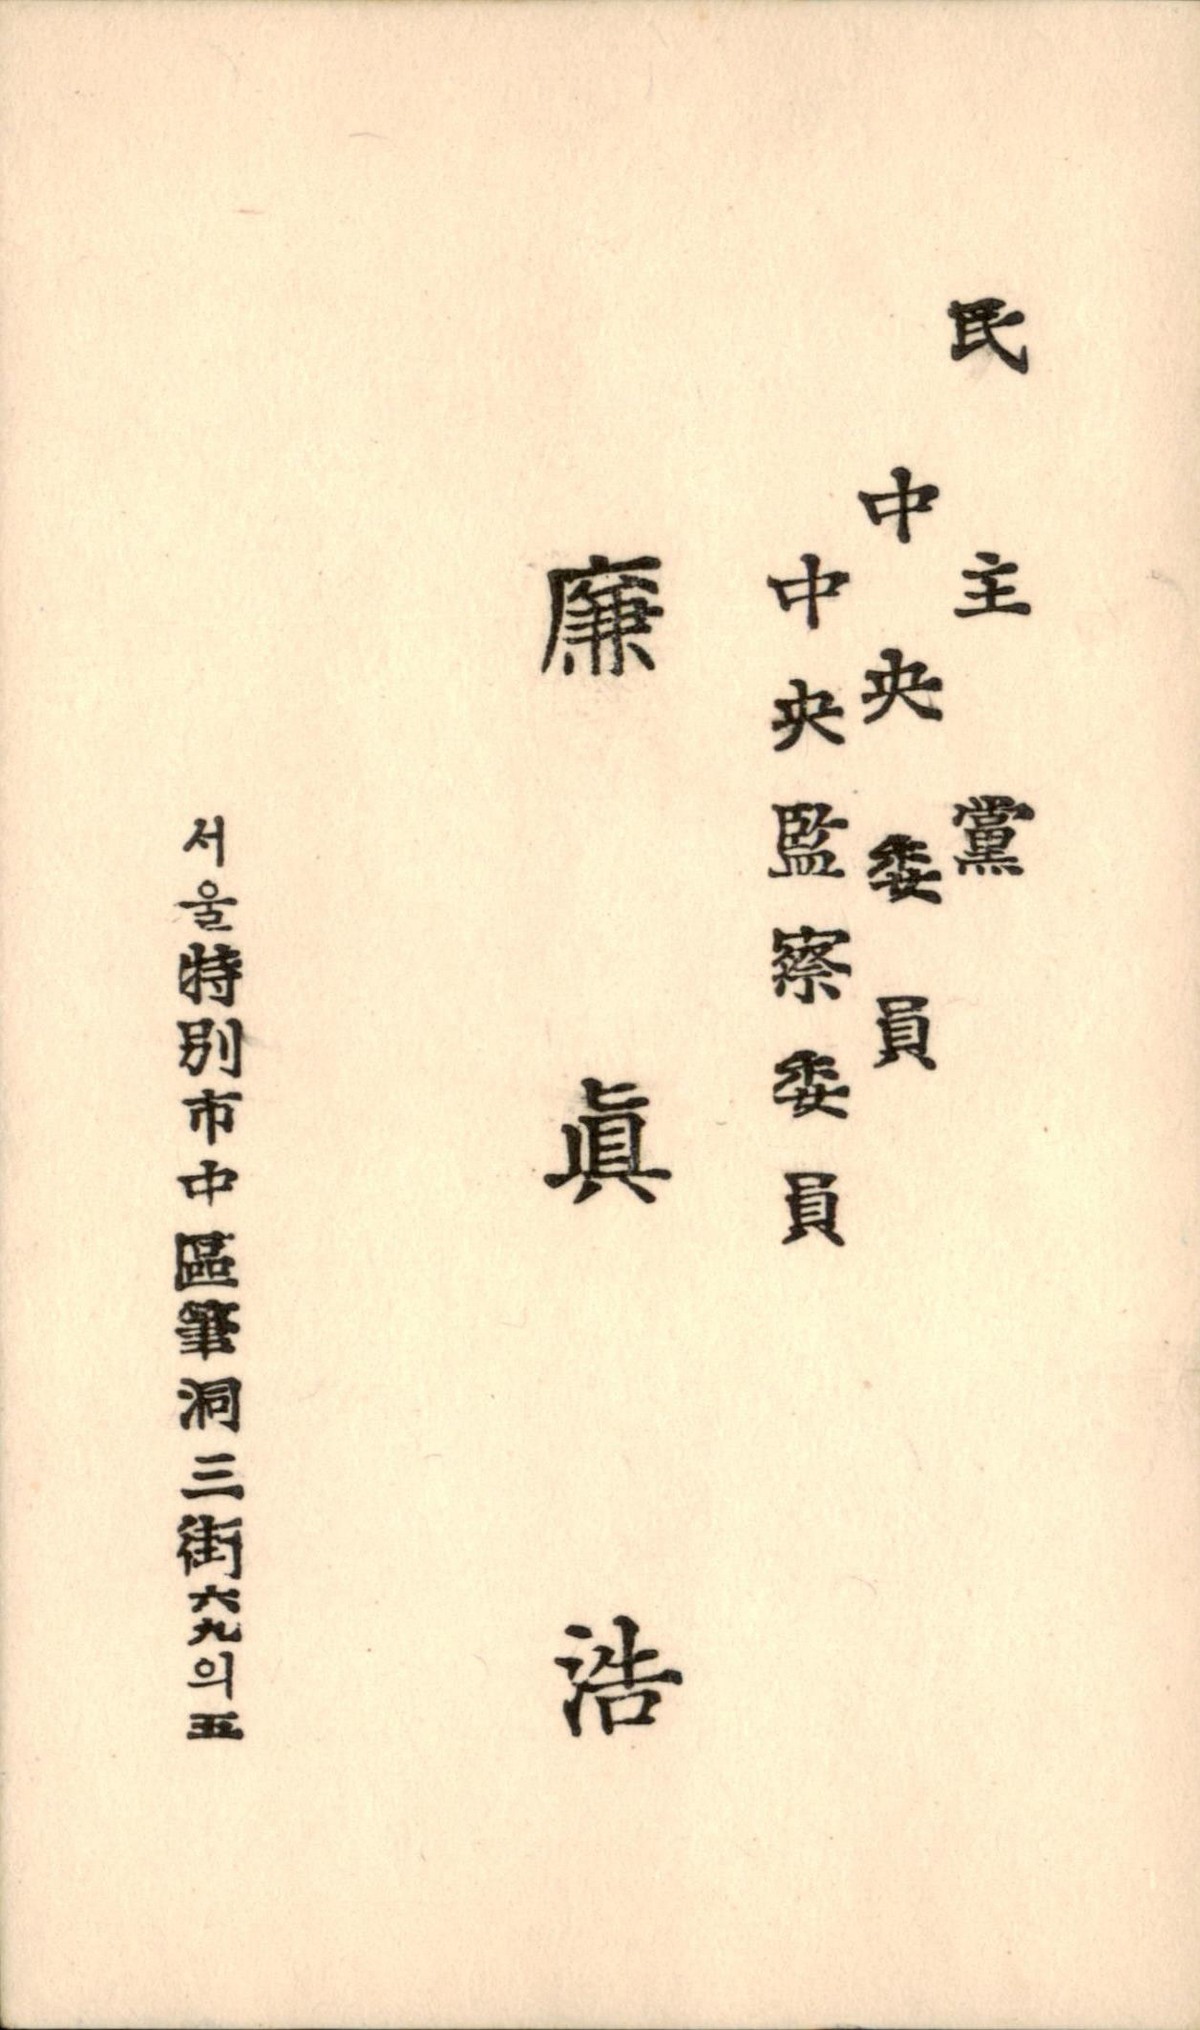 民主黨
中央委員
中央監察委員
廉眞浩
서울特別市中區筆洞三街六九의五